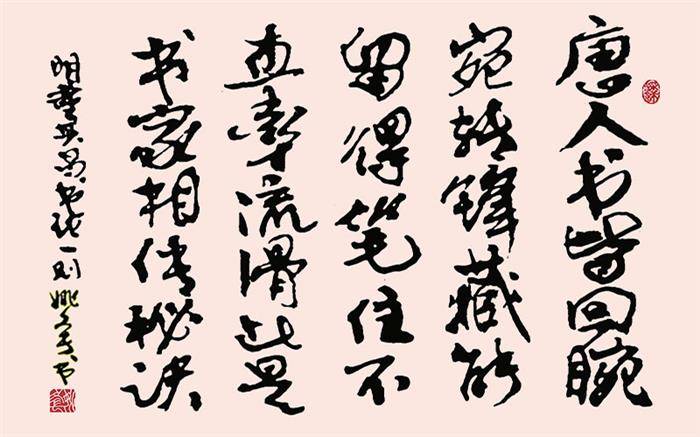 唐人书皆回腕
宛转锋藏能
留得笔住不
直率流滑此是
书家相传秘诀
明董其昌书一则 姚书